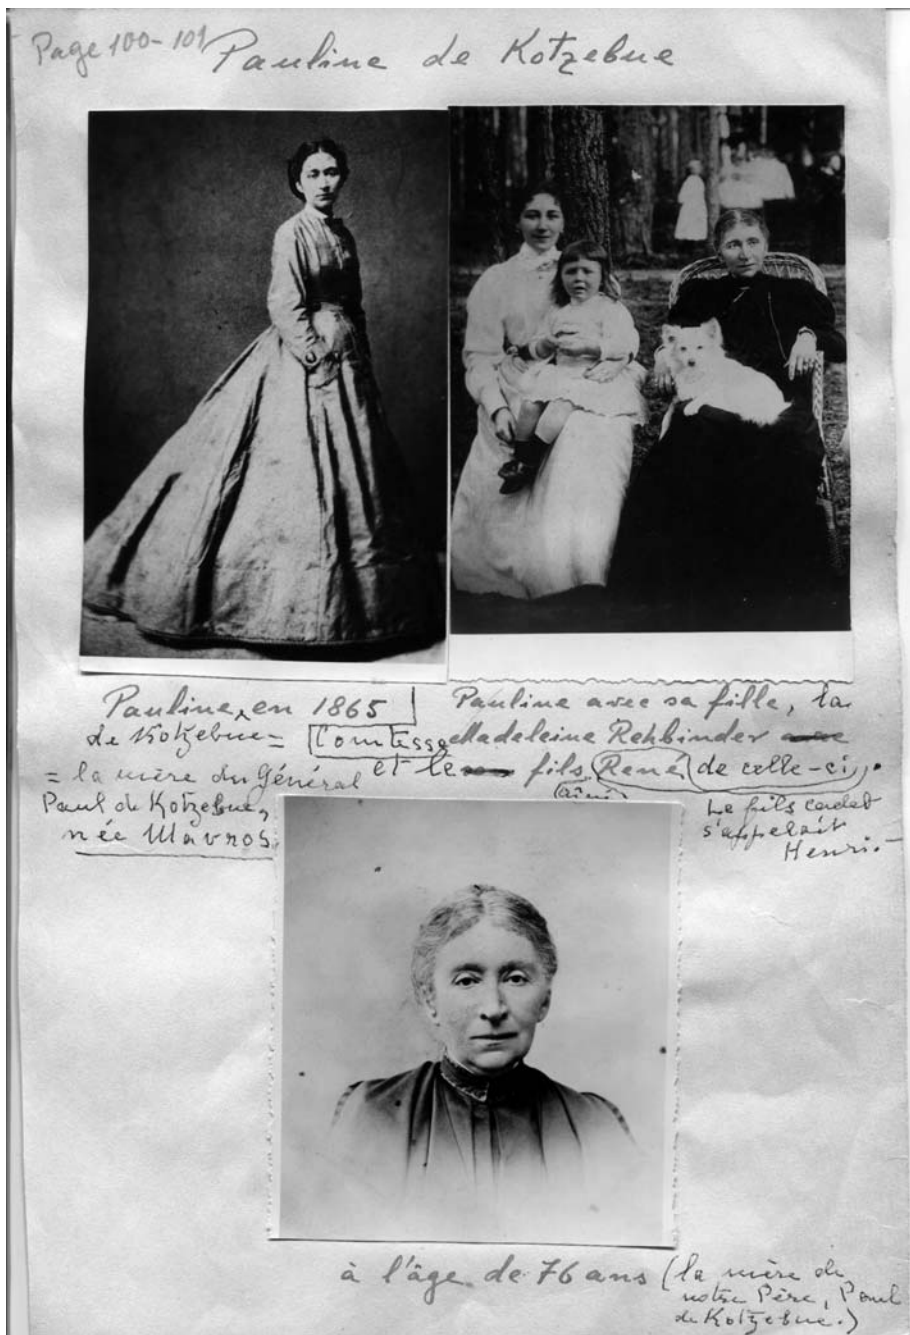 Page 100-101
Pauline de Kotzebue
Pauline en 1865
de Kotzebue =
= la mère du Général
Paul de Kotzebue,
née Mavros.
Pauline avec sa fille, la
Comtesse Madeleine Rehbinder avec
et le fils René de celle-ci.
(aîné)
Le fils cadet
s'appelait
Henri.
à l'âge de 76 ans (la mère de
notre Père, Paul
de Kotzebue.)